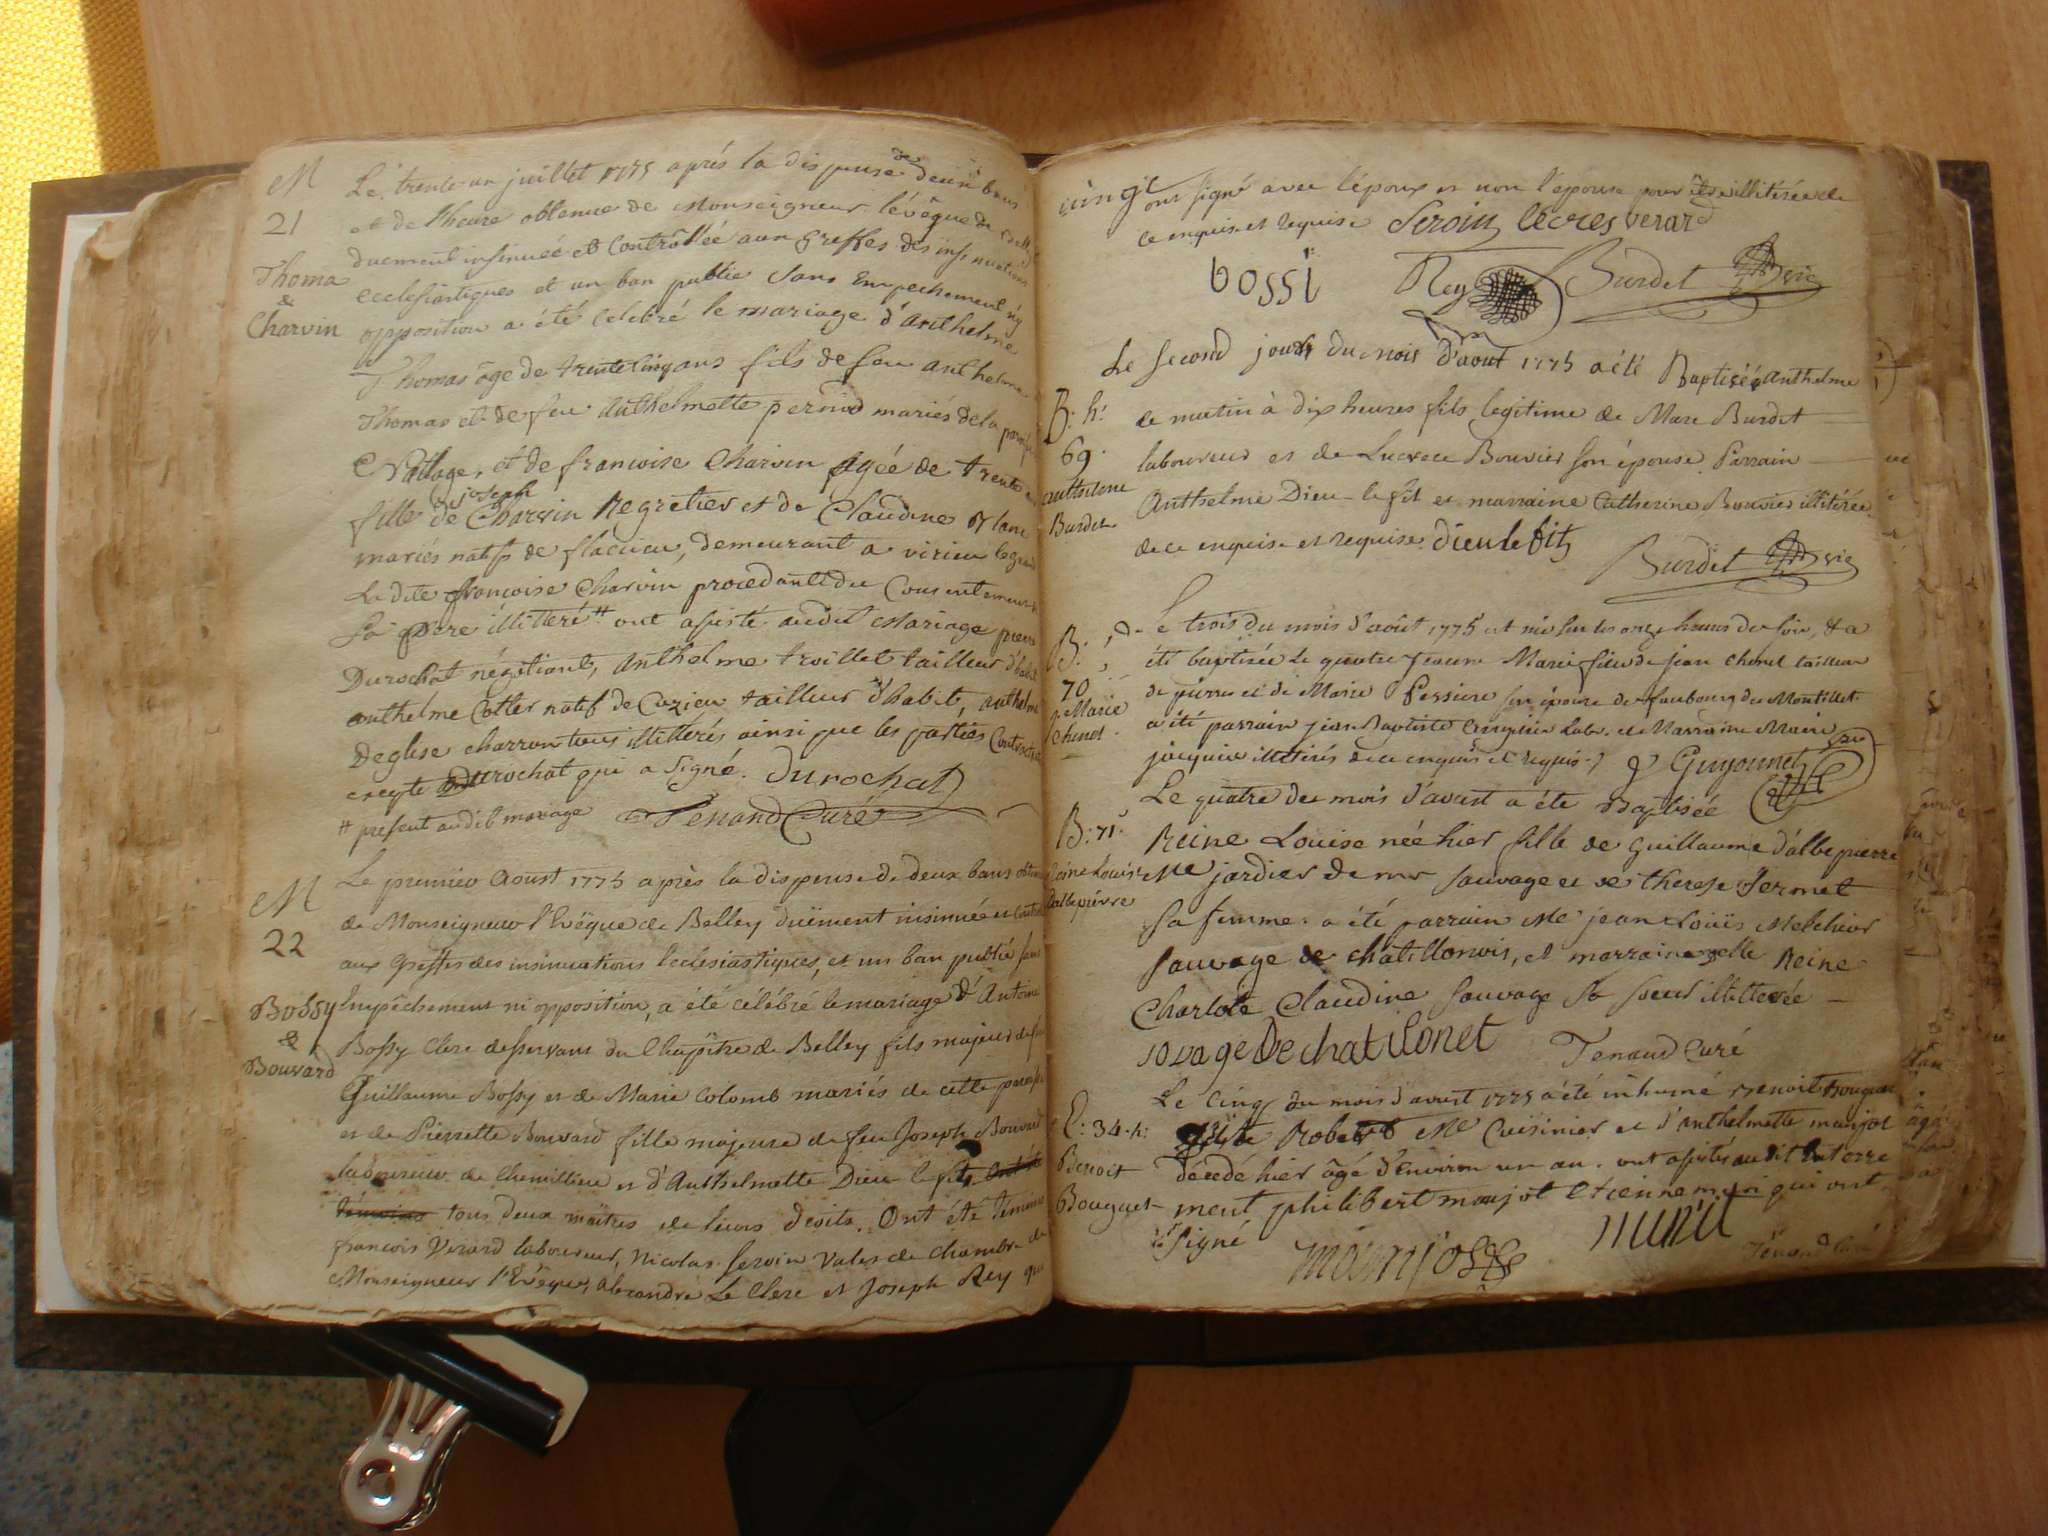 M
21
Thoma
&
Charvin
Le trente-un juillet 1775 aprés la dispense de deux bans
et de l'heure obtenue de Monseigneur l'évêque de
duement insinuée et Contrôllée aux Greffes des insinuations
ecclesiastiques et un ban publié Sans Empechement ny
opposition a été Celebré le mariage d'Anthelme
Thomas âge de trente cinq ans fils de feu anthelme
Thomas et de feu anthelmette pernod mariés de la
, et de francoise Charvin agée de trente
fille de joseph Charvin Regretier et de Claudine
mariés natifs de flacieu, demeurant a virieu le grand
La dite francoise Charvin procedante du Consentement
Sa pere illitteré # ont assisté audit Mariage pierre
Durochat négotiant, anthelme troillet tailleur d'habit
anthelme Cotter natif de Cuzieu tailleur d'habit, anthelme
Deglise charron tous illitterés ainsi que les parties
excepte Durochat qui a signé. durochat
# present audit mariage Tenand Curé
M
22
Bossy
&
Bouvard
Le premier Aoust 1775 après la dispense de deux bans
de Monseigneur l'Evêque de Belley duëment insinuée et
aux Greffes des insinuations Ecclésiastiques, et un ban publié sans
Empêchement ni opposition, a été célébré le mariage d'Antoine
Bossy Clerc desservant du Chapitre de Belley fils majeur de feu
Guillaume Bossy et de Marie Colomb mariés de cette
et de Pierrette Bouvard fille majeure de feu Joseph Bouvard
laboureur de Chemillieu et d'Anthelmette Dieu le fit,
témoins tous deux maîtres de leurs droits. Ont été témoins
françois Verard laboureur, Nicolas Seroin Valet de Chambre de
Monseigneur l'Evêque, Alexandre Le Clerc et Joseph Rey qui
ont signé avec l'époux et non l'épouse pour illitérée de
ce enquise et requise Seroin leclerc verard
bossi Rey Burdet vic
Le second jour du mois d'aout 1775 a été Baptisé anthelme
B. h.
69.
anthelme
Burdet
ce matin à dix heures fils legitime de Marc Burdet
laboureur et de Lucrece Bouvier son épouse. Parrain
Anthelme Dieu-le fit et marraine Catherine Bouvier illitérée
de ce enquise et requise. dieu le fit
Burdet vic
B.
70
j. Marie
Chenet
Le trois du mois d'août 1775 est née sur les onze heures du soir, & a
été baptisée le quatre Jeanne Marie fille de jean Chenet tailleur
de pierres et de Marie Perriere son épouse du faubourg du Montillet
a été parrain jean Baptiste labr. et Marraine Marie
jacquier illitérés de ce enquis et requis. Guyonnet
Le quatre du mois d'aoust a été Baptisée
B: 71.
Reine Louise
Dallepierre
Reine Louise née hier fille de Guillaume d'allepierre
Me jardier de mr Sauvage et de therese Sermet
Sa femme: a été parrain Mr jean Louis Melchior
Sauvage de chatillonois, et marraine delle Reine
Charlote Claudine Sauvage Sa soeur illitterée
sovage De chatilonet Tenand Curé
Le cinq du mois d'aoust 1775 a été inhumé Benoit Bouguet
E: 34. h:
Benoit
Bouguet
Robert Me Cuisinier et d'anthelmette maujot
décédé hier âgé d'environ un an. ont assistés au dit Enterre
ment philibert maujot Etienne qui ont
signé
Tenand Curé